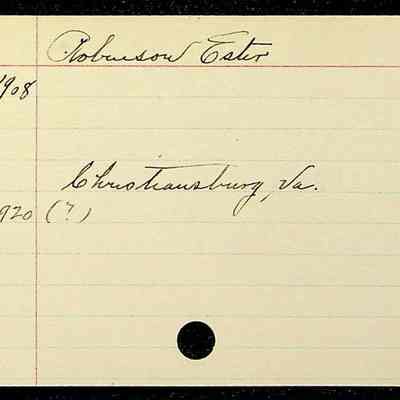 Robinson Ester
1908
Christiansburg, Va.
1920 (?)